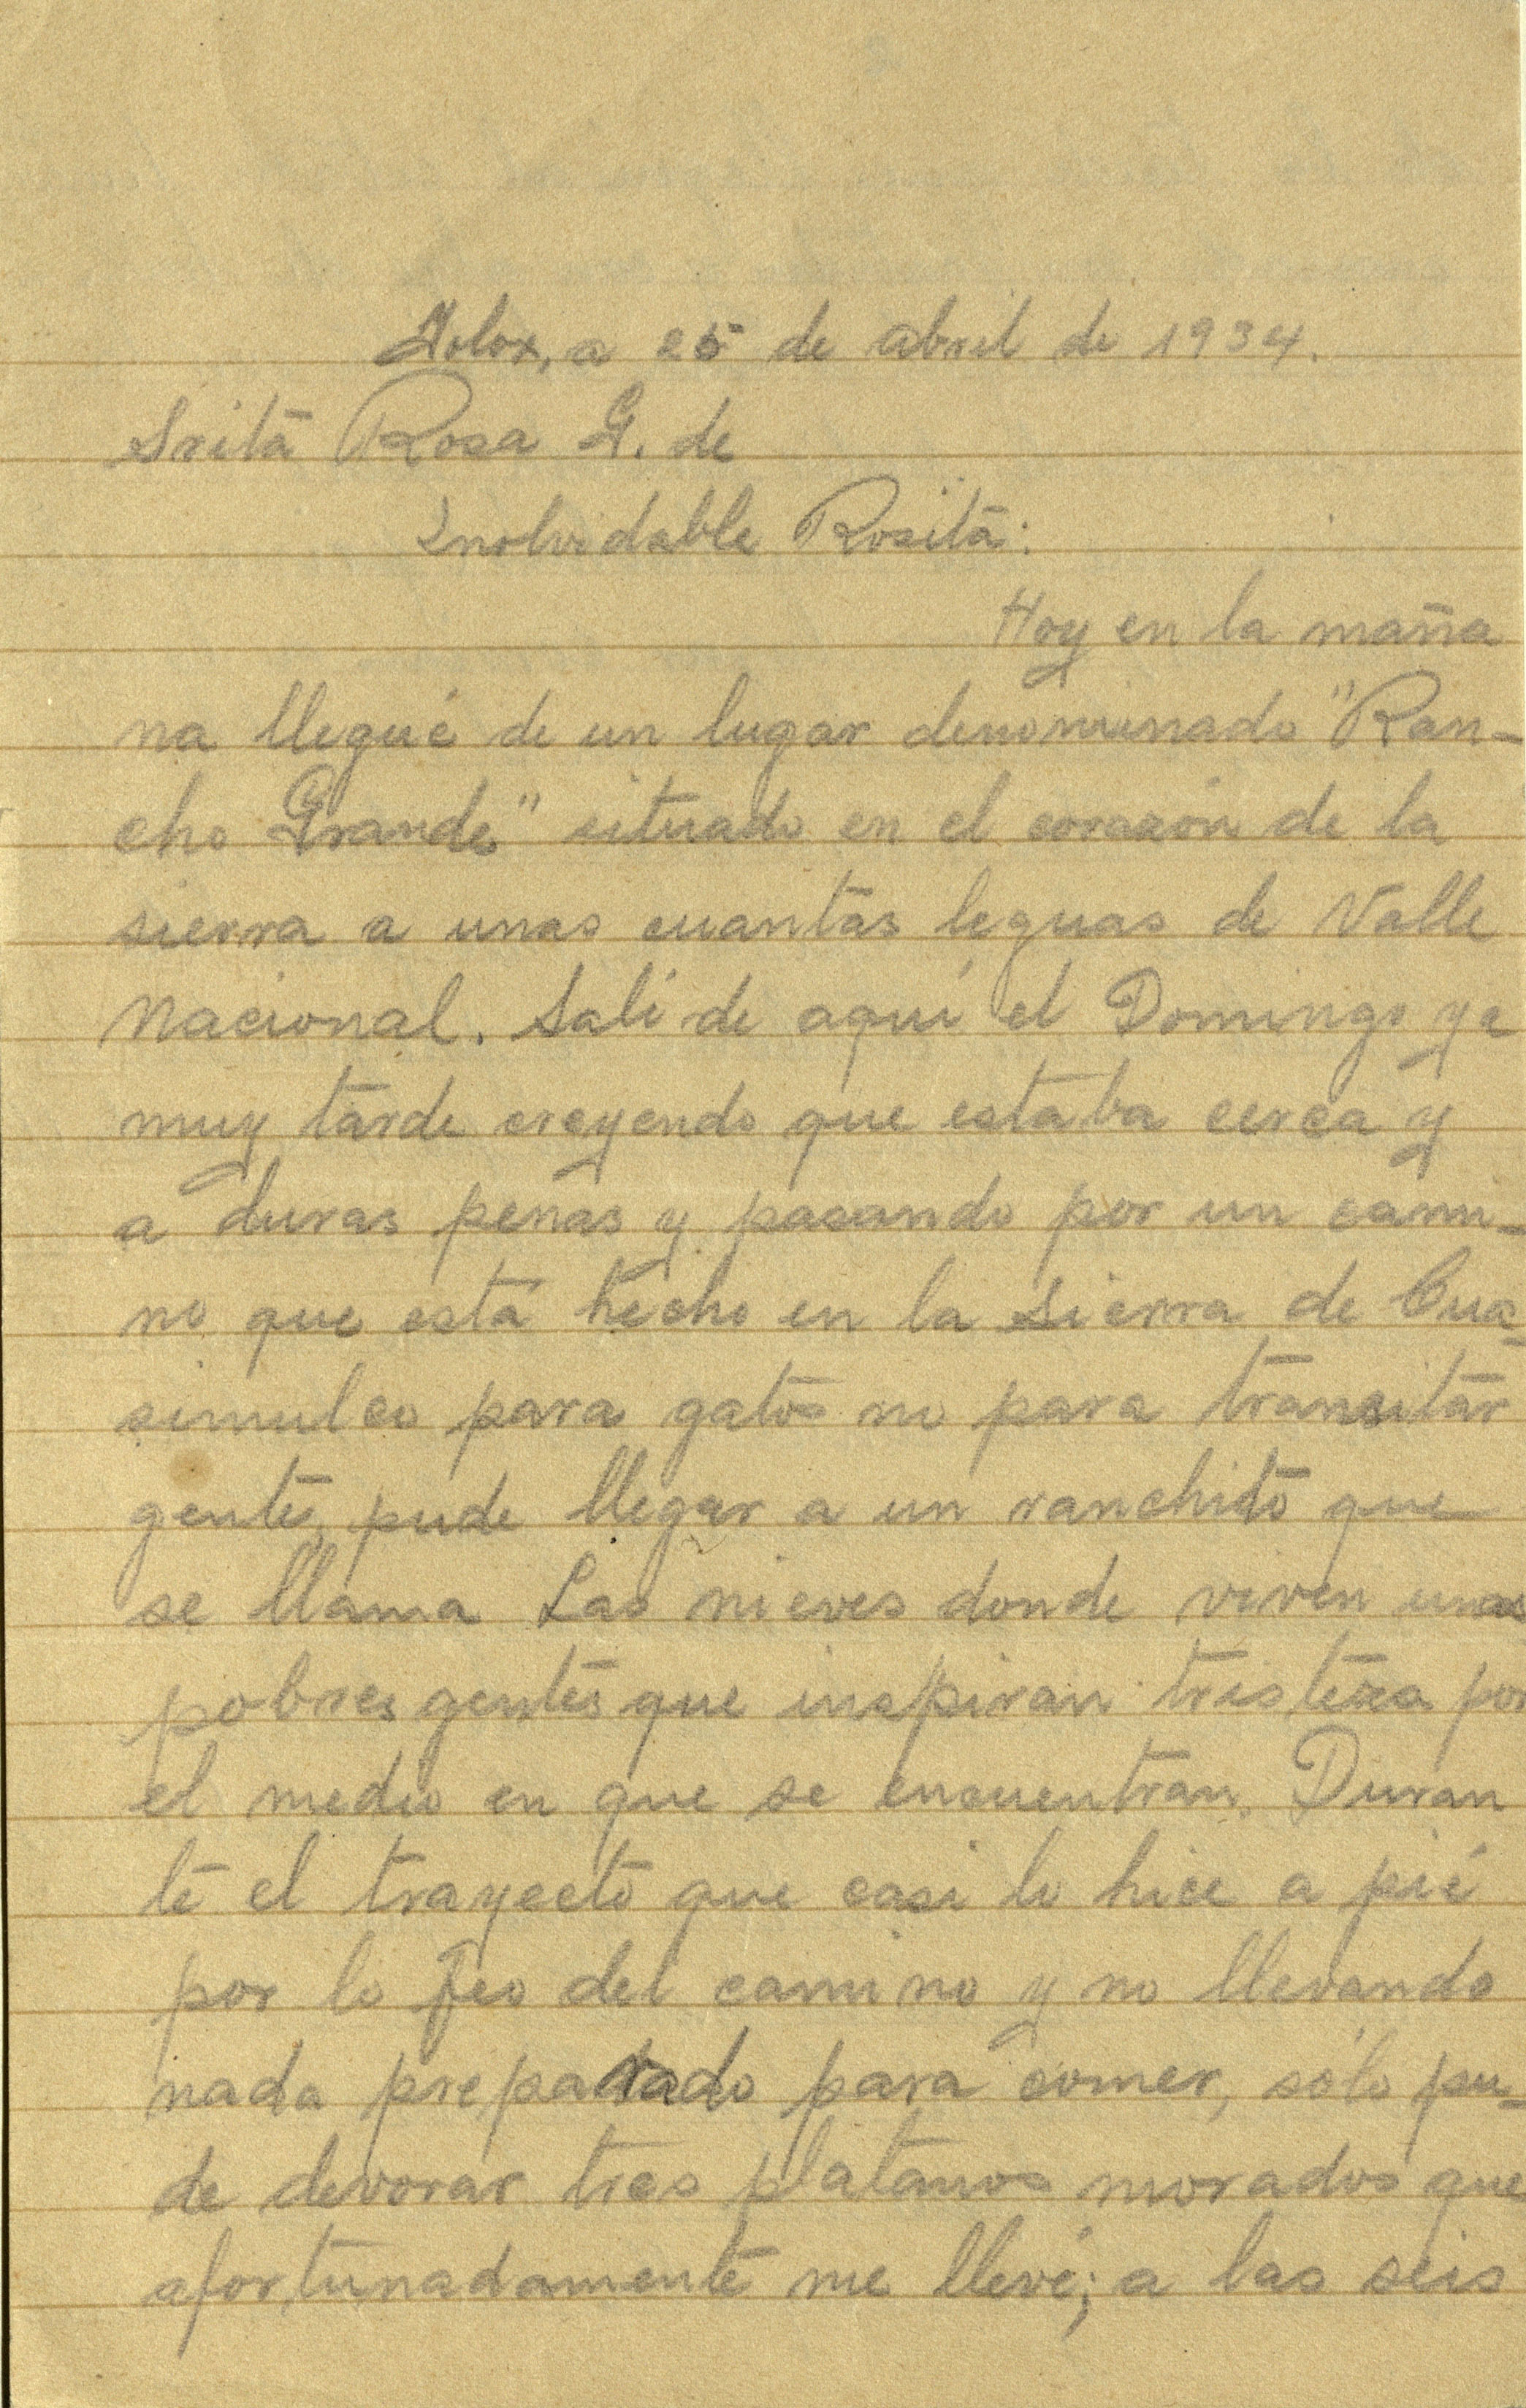 Yolox, a 25 de abril de 1934.
Srita Rosa G. de
Inolvidable Rosita:
Hoy en la maña
na llegué de un lugar denominado "Ran-
cho Grande" situado en el corazón de la
sierra a unas cuantas leguas de Valle
Nacional. Salí de aquí el Domingo ya
muy tarde creyendo que estaba cerca y
a duras penas y pasando por un cami-
no que está hecho en la sierra de Cua-
simulco para gatos no para transitar
gente, pude llegar a un ranchito que
se llama Las nieves donde viven unas
pobres gentes que inspiran tristeza por
el medio en que se encuentran. Duran
te el trayecto que casi lo hice a pié
por lo feo del camino y no llevando
nada preparado para comer, sólo pu-
de devorar tres platanos morados que
afortunadamente me llevé; a las seis